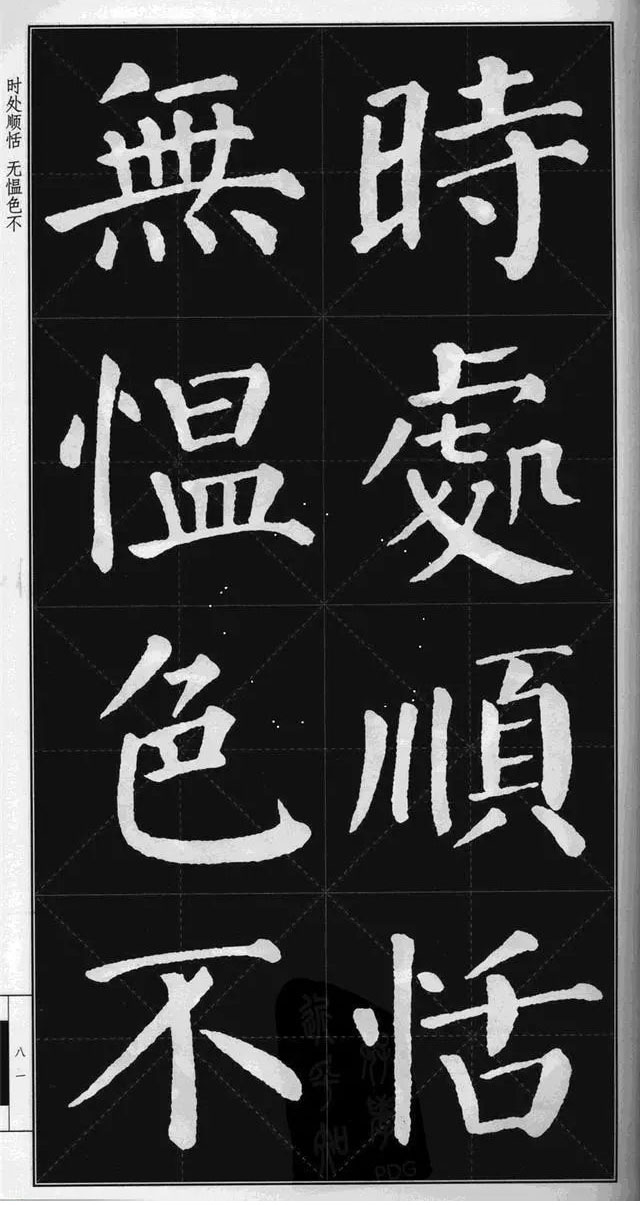 時處順恬
無愠色不
时处顺恬 无愠色不
八一
PDG